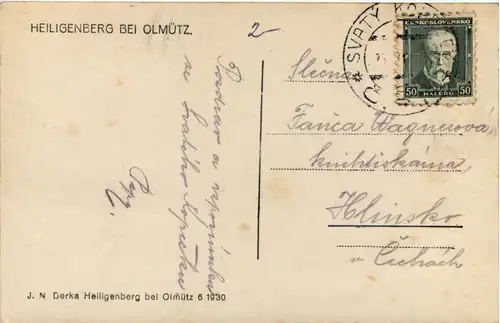 HEILIGENBERG BEI OLMÜTZ.
2-
Pozdrav a vzpomínku
se Svatého Kopečku
SVATÝ KO
ČESKOSLOVENSKO
50 HALÉŘŮ 50
Slečna
Fanča Wagnerova
knihtiskárna
Hlinsko
v Čechách
J. N. Derka Heiligenberg bei Olmütz 6 1930